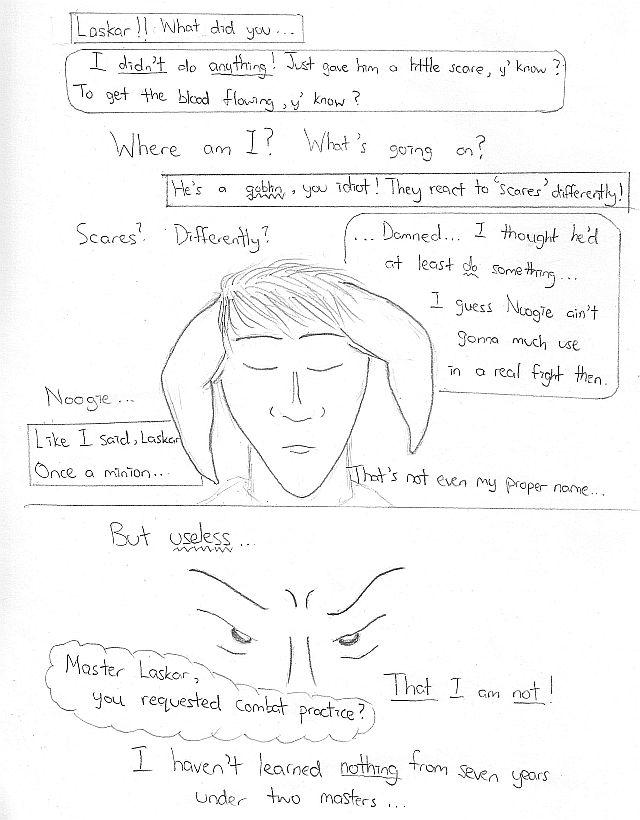 Laskar!! What did you...
I didn't do anything! Just gave him a little scare, y'know?
To get the blood flowing, y'know?
Where am I? What's going on?
He's a goblin, you idiot! They react to 'scares' differently!
Scares? Differently?
... Damned... I thought he'd
at least do something...
I guess Noogie ain't
gonna much use
in a real fight then.
Noogie...
Like I said, Laskar
Once a minion...
That's not even my proper name...
But useless...
Master Laskar,
you requested combat practice?
That I am not!
I haven't learned nothing from seven years
under two masters...